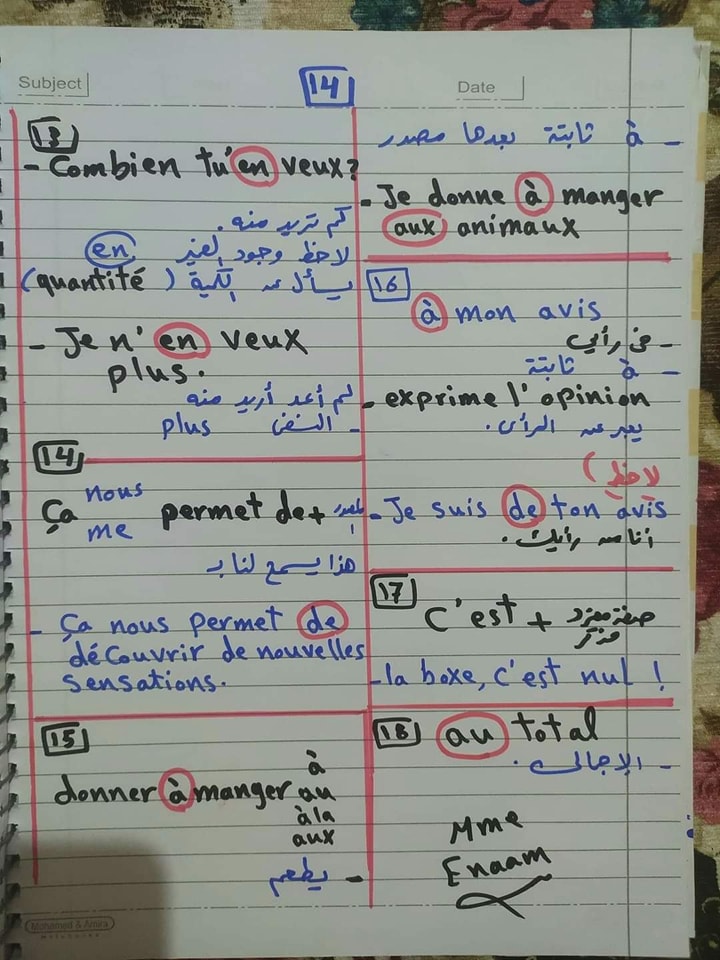 Subject
14
Date
13
- Combien tu'en veux?
كم تريد منه.
لاحظ وجود الضمير en
يسأل عن الكمية (quantité)
- Je n'en veux
plus.
لم أعد أريد منه
- النفى plus
14
Ça nous permet de + المصدر
me
هذا يسمح لنا بـ
- Ça nous permet de
découvrir de nouvelles
sensations.
15
à
donner à manger au
à la
aux
- يطعم
- à ثابتة بعدها مصدر
- Je donne à manger
aux animaux
16
à mon avis
- فى رأيي
- à ثابتة
- exprime l'opinion
يعبر عن الرأى.
لاحظ)
- Je suis de ton avis
أنا من رأيك.
17
C'est + صفة مفرد
مذكر
- la boxe, c'est nul !
18 au total
- الإجمالى.
Mme
Enaam
Mohamed & Amira